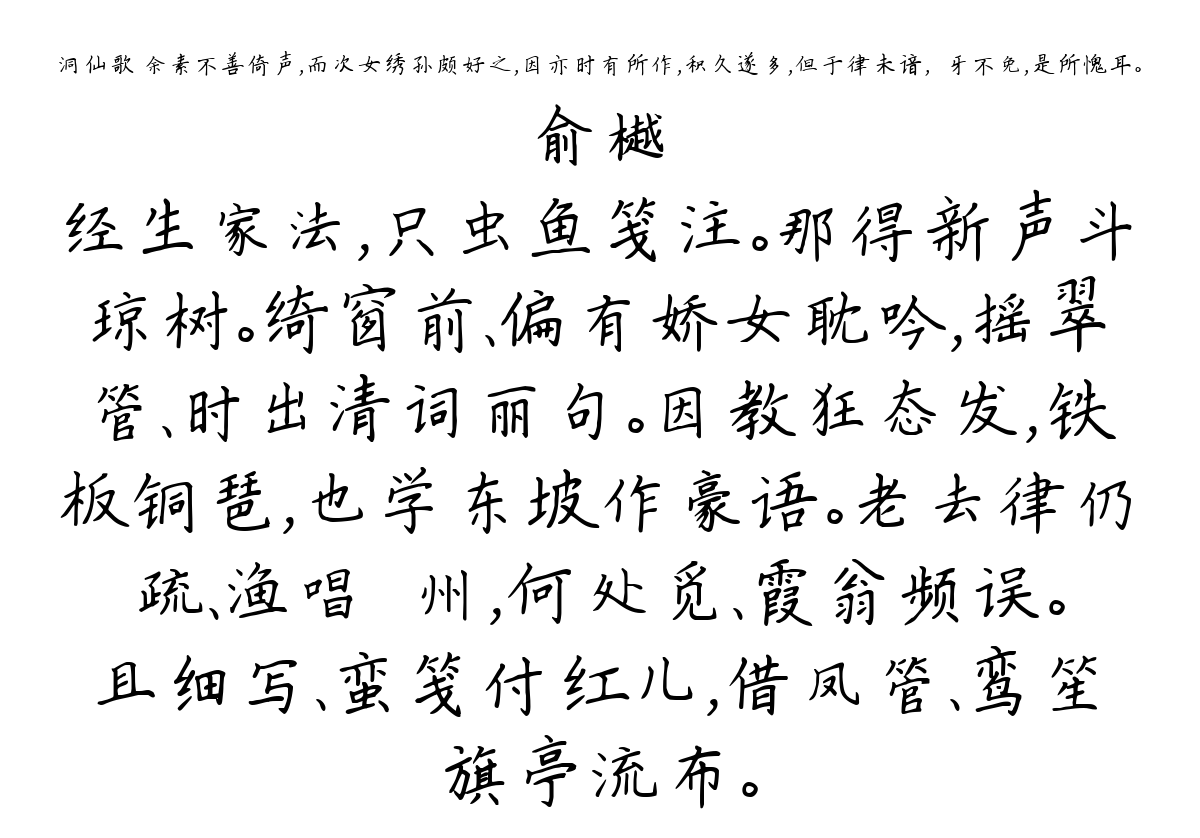 洞仙歌 余素不善倚声,而次女绣孙颇好之,因亦时有所作,积久遂多,但于律未谙, 牙不免,是所愧耳。
俞樾
经生家法,只虫鱼笺注。那得新声斗
琼树。绮窗前、偏有娇女耽吟,摇翠
管、时出清词丽句。因教狂态发,铁
板铜琶,也学东坡作豪语。老去律仍
疏、渔唱 州,何处觅、霞翁频误。
且细写、蛮笺付红儿,借凤管、鸾笙
旗亭流布。